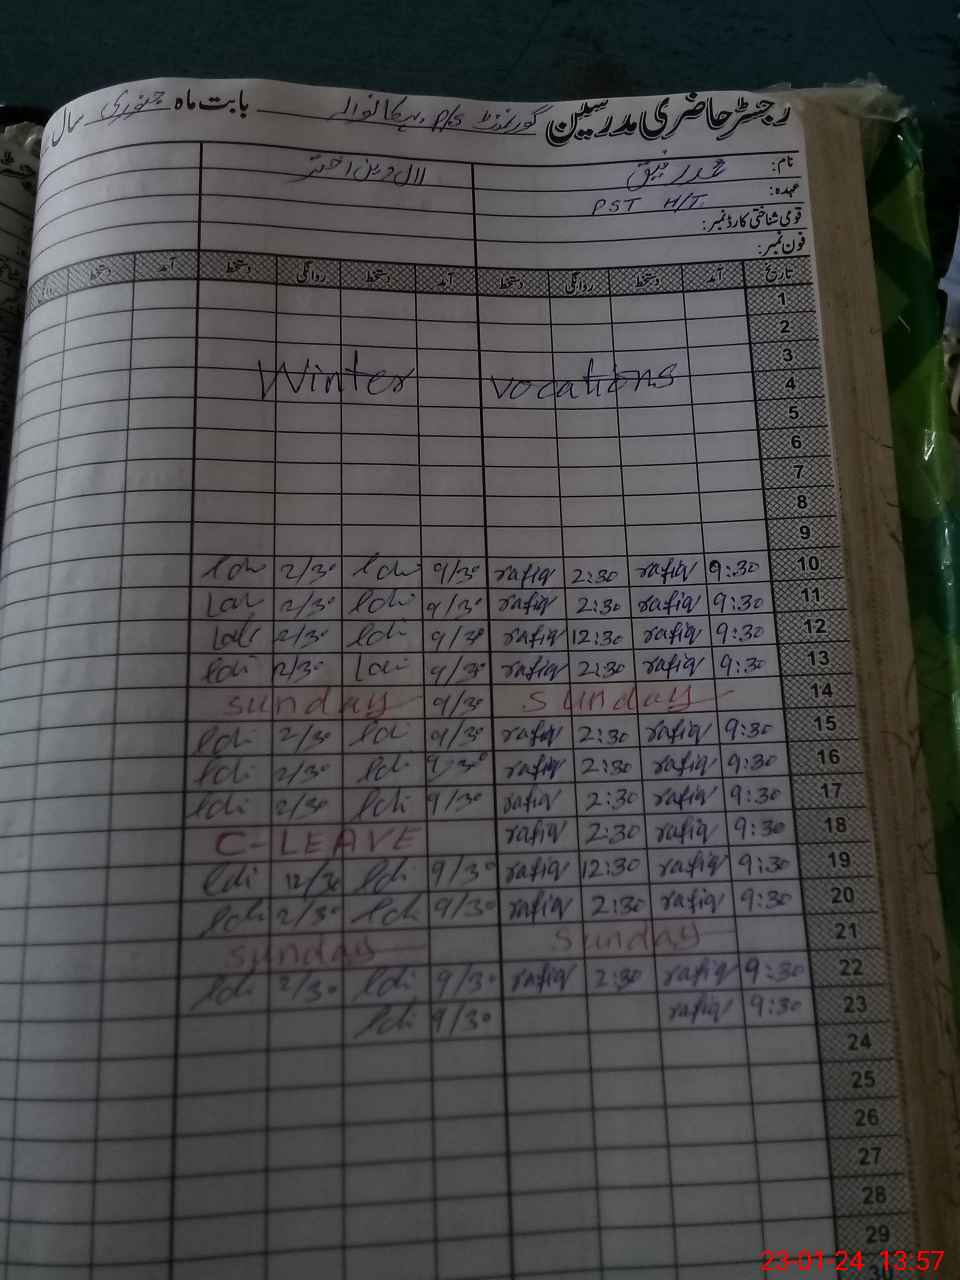 رجسٹر حاضری مدرسین گورنمنٹ P/S بابت ماہ جنوری سال
نام: محمد رفیق لال دین اختر
عہدہ: PST H/T
قومی شناختی کارڈ نمبر:
فون نمبر:
تاریخ آمد دستخط روانگی دستخط آمد دستخط روانگی دستخط آمد دستخط
1
2
3
Winter vocations
4
5
6
7
8
9
ldi 2/30 ldi 9/30 rafiq 2:30 rafiq 9:30 10
ldi 2/30 ldi 9/30 rafiq 2:30 rafiq 9:30 11
ldi 2/30 ldi 9/30 rafiq 12:30 rafiq 9:30 12
ldi 2/30 ldi 9/30 rafiq 2:30 rafiq 9:30 13
sunday 9/30 Sunday 14
ldi 2/30 ldi 9/30 rafiq 2:30 rafiq 9:30 15
ldi 2/30 ldi 9/30 rafiq 2:30 rafiq 9:30 16
ldi 2/30 ldi 9/30 rafiq 2:30 rafiq 9:30 17
C-LEAVE rafiq 2:30 rafiq 9:30 18
ldi 12/30 ldi 9/30 rafiq 12:30 rafiq 9:30 19
ldi 2/30 ldi 9/30 rafiq 2:30 rafiq 9:30 20
sunday Sunday 21
ldi 2/30 ldi 9/30 rafiq 2:30 rafiq 9:30 22
ldi 9/30 rafiq 9:30 23
24
25
26
27
28
29
23-01-24 13:57